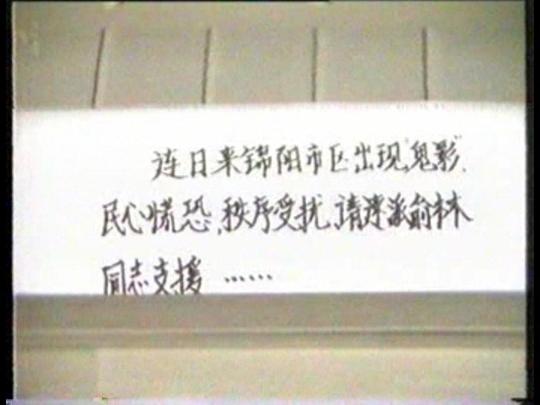 连日来锦阳市区出现“鬼影”、
民心慌恐,秩序受扰、请速派俞林
同志支援 ……